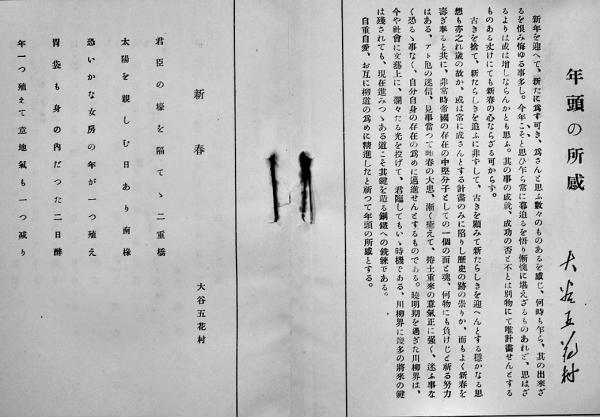 年頭の所感
大谷五花村
新年を迎へて、新たに為す可き、為さんと思ふ数々のものあるを感じ、何時も乍ら、其の出來ざ
るを恨み悔ゆる事多し。今年こそと思ひ乍ら常に暮迫るを悟り慚愧に堪えざるものあれど、思はざ
るよりは或は増しならんかとも思ふ。其の事の成就、成功の否と不とは別物にて唯計畫せんとする
ものある丈けにても新春の心ならざる可からず。
古きを捨て、新たらしきを追ふに非ずして、古きを顧みて新たらしきを迎へんとする穏かなる思
想も亦之れ歳の故か、或は常に成さんとする計畫のみに陥りし歴史の跡の祟りか、而もよく新春を
壽ぎ奉ると共に、非常時帝國の存在の中堅分子としての一個の面と魂、何物にも負けじと祈る努力
はある、アト厄の迷信、見事當つて昨春の大患、漸く癒えて、捲土重來の意氣正に强く、迷ふ事な
く恐るゝ事なく、自分自身の存在の爲めに邁進せんとするものである。曉明期を過ぎた川柳界は、
今や社會に文藝上に、爛々たる光を投げて、君臨してもいゝ時機である、川柳界に幾多の將來の鍵
は残されても、現在進みつゝある道こそ其鍵を造る鋼鐵への銑錬である。
自重自愛、お互に柳道の爲めに精進したと祈つて年頭の所感とする。
新春
大谷五花村
君臣の壕を隔てゝ二重橋
太陽を親しむ日あり南椽
恐いかな女房の年が一つ殖え
胃袋も身の内だつた二日酔
年一つ殖えて意地氣も一つ減り